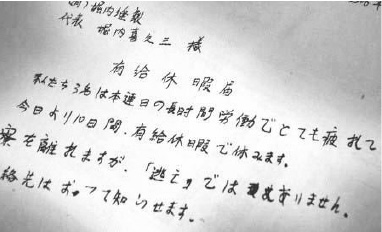 (有)堀内縫製
代表 堀内喜久三 様
有給休暇届
私たち3名は本連日の長時間労働でとても疲れて
今日より10日間、有給休暇で休みます。
寮を離れますが、「逃亡」ではありません。
絡先はおって知らせます。